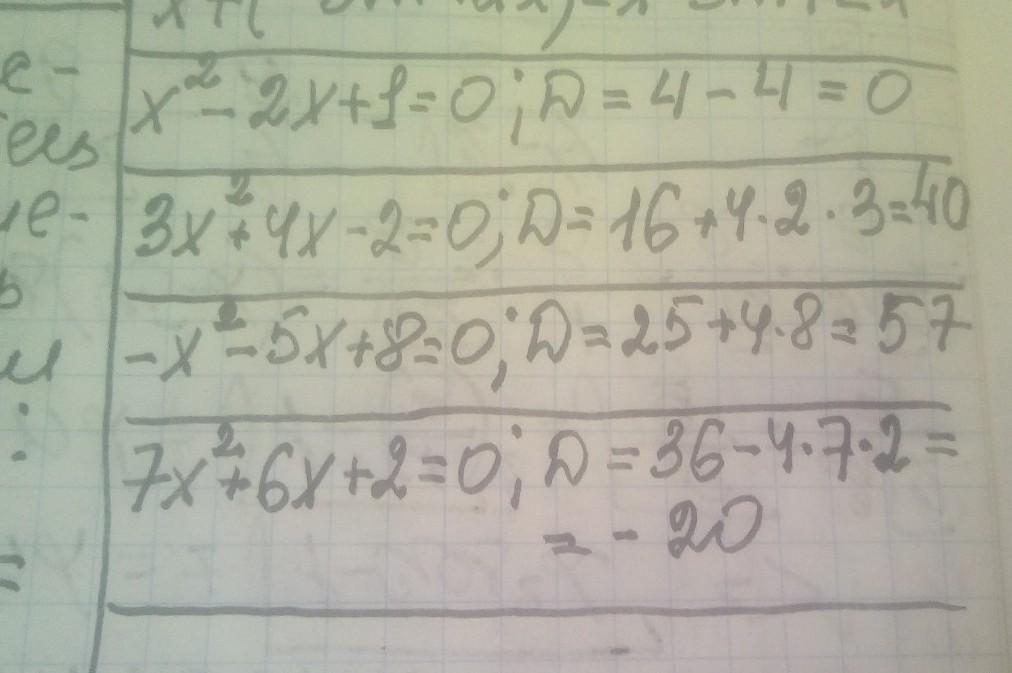 е-
x² - 2x + 1 = 0; D = 4 - 4 = 0
3x² + 4x - 2 = 0; D = 16 + 4 · 2 · 3 = 40
-x² - 5x + 8 = 0; D = 25 + 4 · 8 = 57
и
:
7x² + 6x + 2 = 0; D = 36 - 4 · 7 · 2 =
= - 20
=